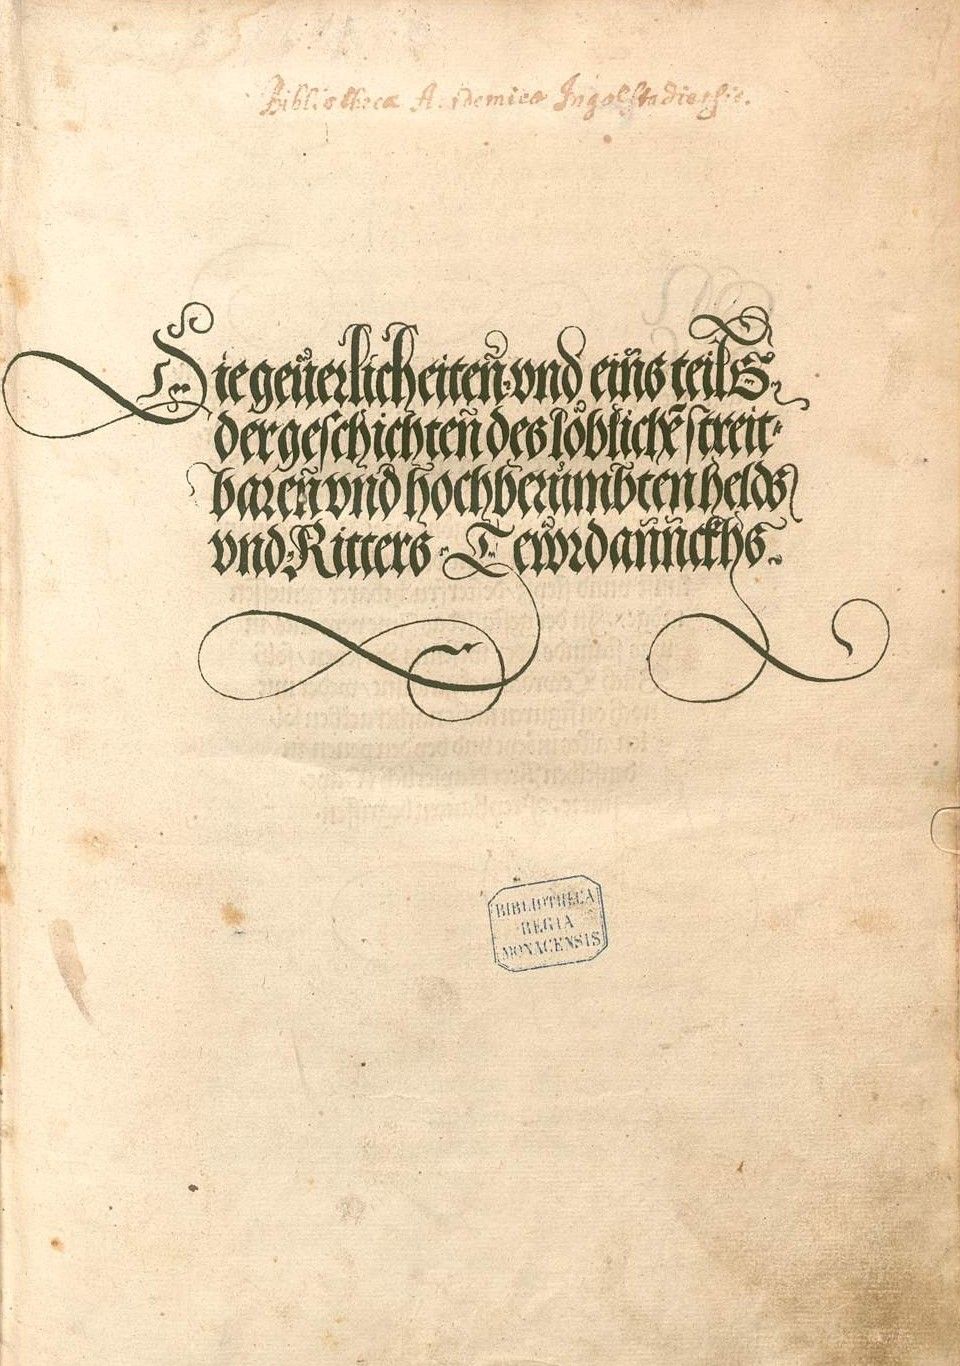 Bibliotheca Academica Ingolstadiensis.
Die geuͤerlicheiten̄ vnd eins teils
der geschichten̄ des loͤblichē streit-
baren̄ vnd hochberuͤmbten helds
vnd Ritters Tewrdannckhs
BIBLIOTHECA
REGIA
MONACENSIS